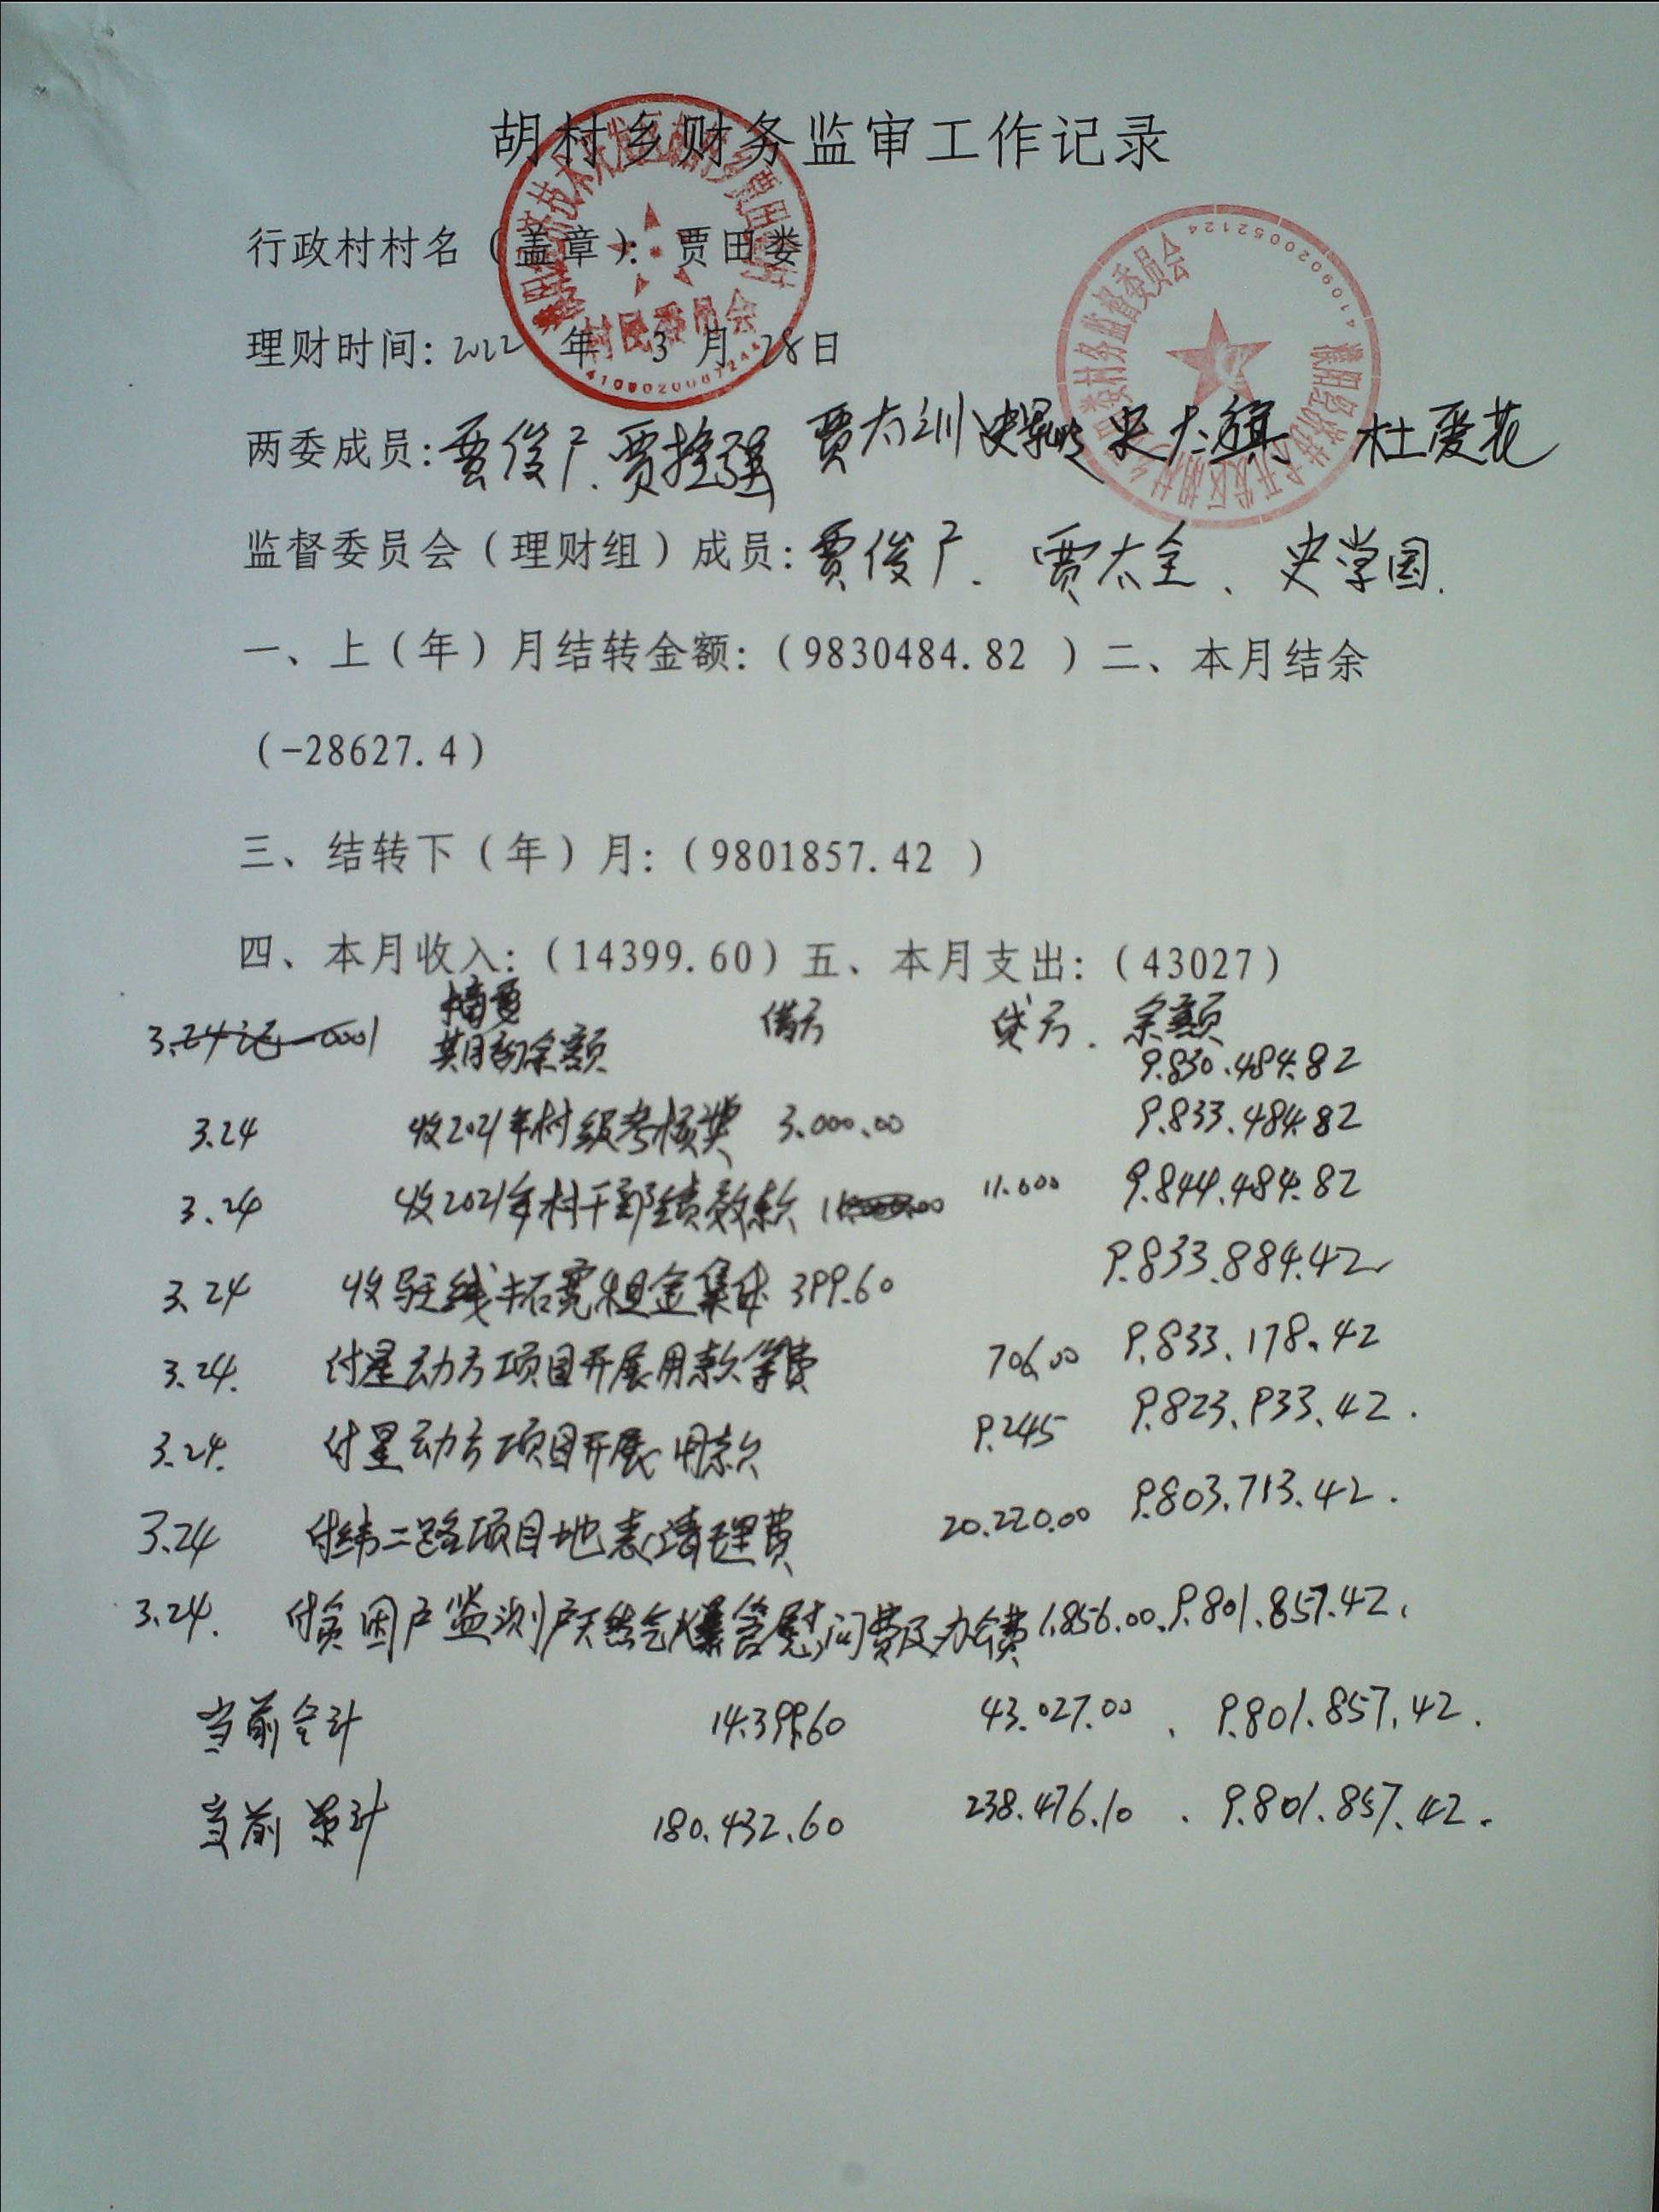 胡村乡财务监审工作记录
行政村村名（盖章）：贾田娄
村民委员会
理财时间：2022 年 3 月 28日
4109020052124
两委成员：贾俊广、贾拴强 贾太训 史大旗 杜爱花
监督委员会（理财组）成员：贾俊广、贾太全、史学国.
一、上（年）月结转金额：（9830484.82 ）二、本月结余
（-28627.4）
三、结转下（年）月：（9801857.42 ）
四、本月收入：（14399.60）五、本月支出：（43027）
摘要 借方 贷方. 余额
3.24记-0001 期初余额 9.830.484.82
3.24 收2021年村级考核奖 3.000.00 9.833.484.82
3.24 收2021年村干部绩效款 11.000 9.844.484.82
3.24 收 线拓宽租金集体 399.60 9.833.884.42
3.24. 付星动方项目开展用款等费 706.00 9.833.178.42
3.24. 付星动方项目开展用款 9.245 9.823.933.42.
3.24 付纬二路项目地表清理费 20.220.00 9.803.713.42.
3.24. 付贫困户监测户天然气爆 慰问费及办公费 1.856.00. 9.801.857.42.
当前合计 14.399.60 43.027.00 . 9.801.857.42.
当前累计 180.432.60 238.476.10 . 9.801.857.42.